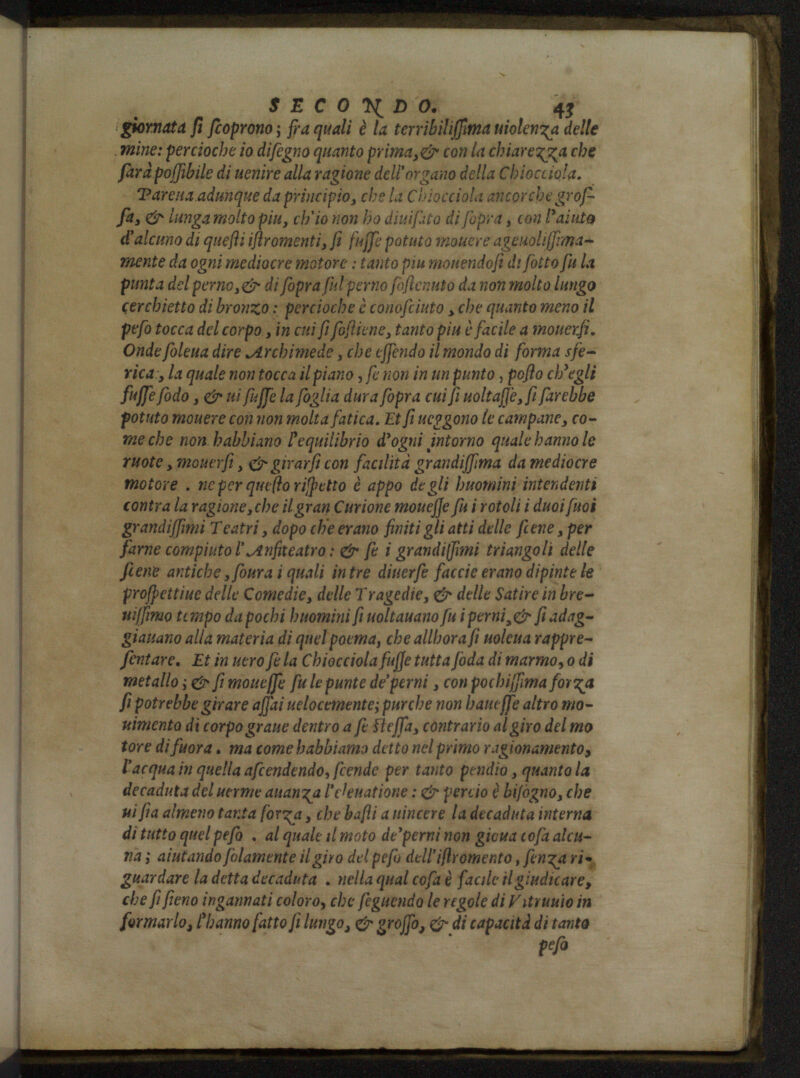 SECONDO. 43
giornata ſi ſcoprono; fra quali è la terribiliſſima uiolenza delle
mine: percioche io diſegno quanto prima, & con la chiarezza che
ſarà poſſibile di uenire alla ragione dell'organo della Chiocciola.
Pareua adunque da principio, che la Chiocciola ancorche groſ-
ſa, & lunga molto piu, ch'io non ho diuiſato di ſopra, con l'aiuto
d'alcuno di queſti iſtromenti, ſi fuſſe potuta mouere ageuoliſſima-
mente da ogni mediocre motore: tanto piu mouendoſi di ſotto ſu la
punta del perno, & di ſopra ſul perno ſoſtenuto da non molto lungo
cerchietto di bronzo: percioche è conoſciuto, che quanto meno il
peſo tocca del corpo, in cui ſi ſoſtiene, tanto piu è facile a mouerſi.
Onde ſoleua dire Archimede, che eſſendo il mondo di forma sfe-
rica, la quale non tocca il piano, ſe non in un punto, poſto ch'egli
fuſſe ſodo, & ui fuſſe la ſoglia dura ſopra cui ſi uoltaſſe, ſi ſarebbe
potuto mouere con non molta fatica. Et ſi ueggono le campane, co-
me che non habbiano l'equilibrio d'ogni intorno quale hanno le
ruote, mouerſi, & girarſi con facilità grandiſſima da mediocre
motore. ne per queſto riſpetto è appo de gli huomini intendenti
contra la ragione, che il gran Curione moueſſe ſu i rotoli i duoi ſuoi
grandiſſimi Teatri, dopo che erano finiti gli atti delle ſcene, per
farne compiuto l'Anfiteatro: & ſe i grandiſſimi triangoli delle
ſcene antiche, ſoura i quali in tre diuerſe faccie erano dipinte le
proſpettiue delle Comedie, delle Tragedie, & delle Satire in bre-
uiſſimo tempo da pochi huomini ſi uoltauano ſu i perni, & ſi adag-
giauano alla materia di quel poema, che allhora ſi uoleua rappre-
ſentare. Et in uero ſe la Chiocciola fuſſe tutta ſoda di marmo, o di
metallo; & ſi moueſſe ſu le punte de'perni, con pochiſſima forza
ſi potrebbe girare aſſai uelocemente; purche non haueſſe altro mo-
uimento di corpo graue dentro a ſe ſteſſa, contrario al giro del mo
tore di fuora. ma come habbiamo detto nel primo ragionamento,
l'acqua in quella aſcendendo, ſcende per tanto pendio, quanto la
decaduta del uerme auanza l'eleuatione: & percio è biſogno, che
ui ſia almeno tanta forza, che baſti a uincere la decaduta interna
di tutto quel peſo. al quale il moto de'perni non gioua coſa alcu-
na; aiutando ſolamente il giro del peſo dell'iſtromento, ſenza ri-
guardare la detta decaduta. nella qual coſa è facile il giudicare,
che ſi ſieno ingannati coloro, che ſeguendo le regole di Vitruuio in
formarlo, l'hanno fatto ſi lungo, & groſſo, & di capacità di tanto
peſo